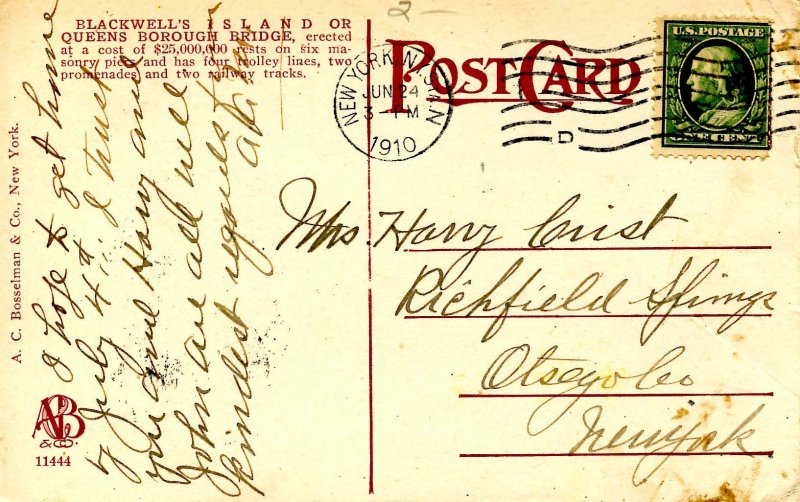 2-
BLACKWELL'S ISLAND OR
QUEENS BOROUGH BRIDGE, erected
at a cost of $25,000,000 rests on six ma-
sonry piers and has four trolley lines, two
promenades and two railway tracks.
I hope to get home
by July 4th. I trust
you and Harry and
John are all well
kindest regards to
all
A. C. Bosselman & Co., New York.
ACB
& CO.
11444
POST CARD
NEW YORK, N.Y. STA. N
JUN 24
3- PM
1910
D
U.S. POSTAGE
ONE CENT
Mrs. Harry Crist
Richfield Springs
Otsego Co
New York